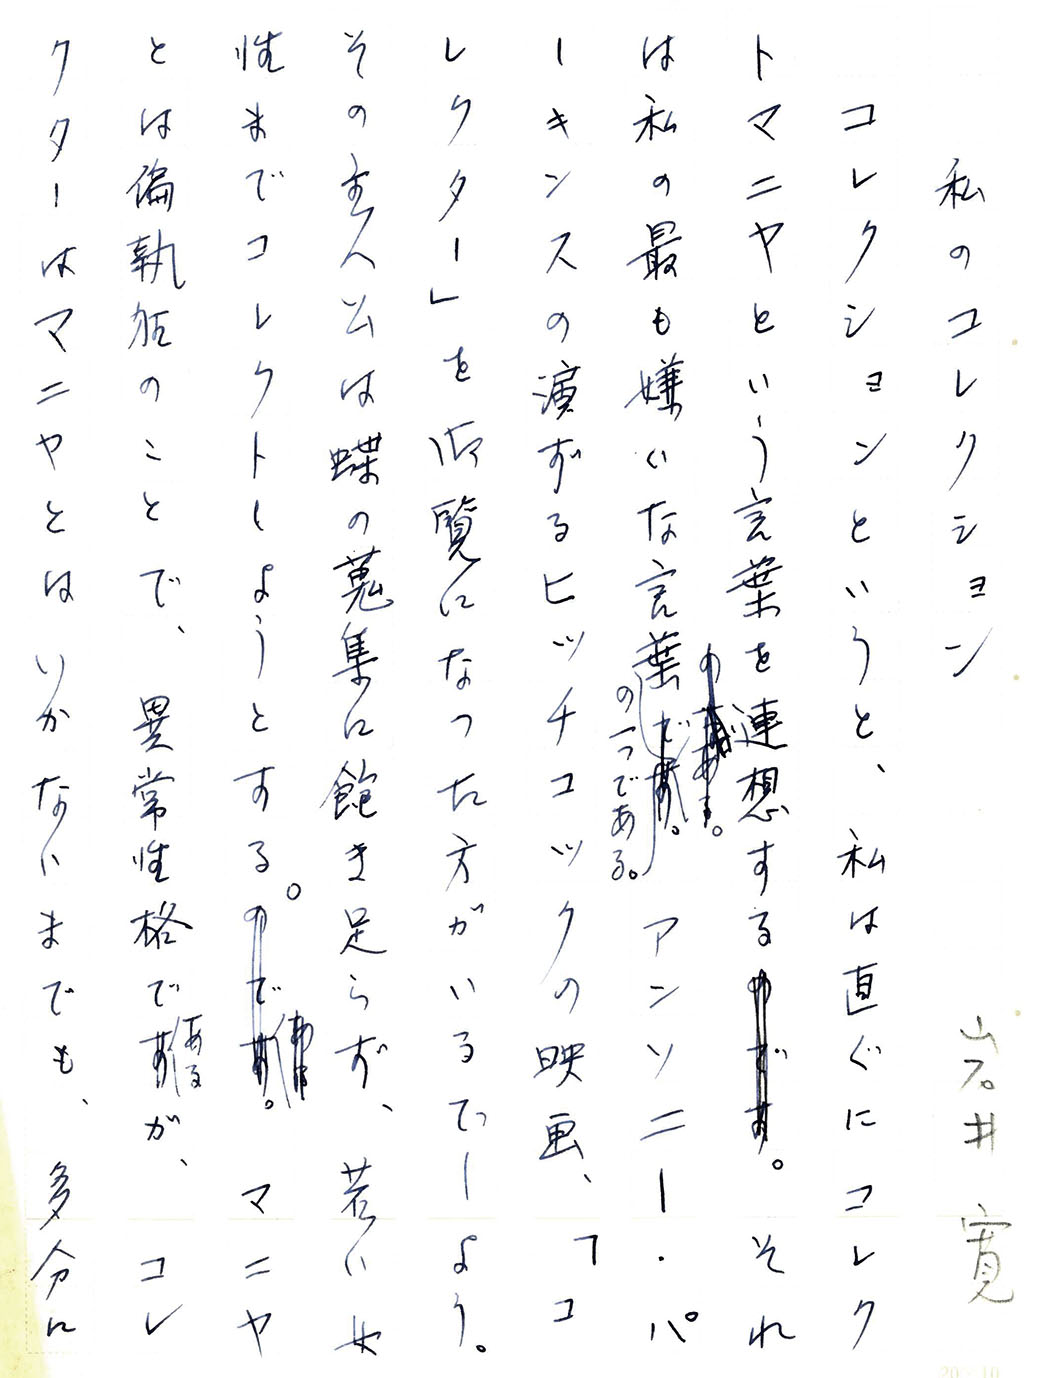 私のコレクション
岩井 寛
コレクションというと、私は直ぐにコレク
トマニヤという言葉を連想するのです。それ
は私の最も嫌いな言葉の一つである。アンソニー・パ
ーキンスの演ずるヒッチコックの映画、「コ
レクター」を御覧になった方がいるでしよう。
その主人公は蝶の蒐集に飽き足らず、若い女
性までコレクトしようとする。のです。マニヤ
とは偏執狂のことで、異常性格であるが、コレ
クターはマニヤとはいかないまでも、多分に